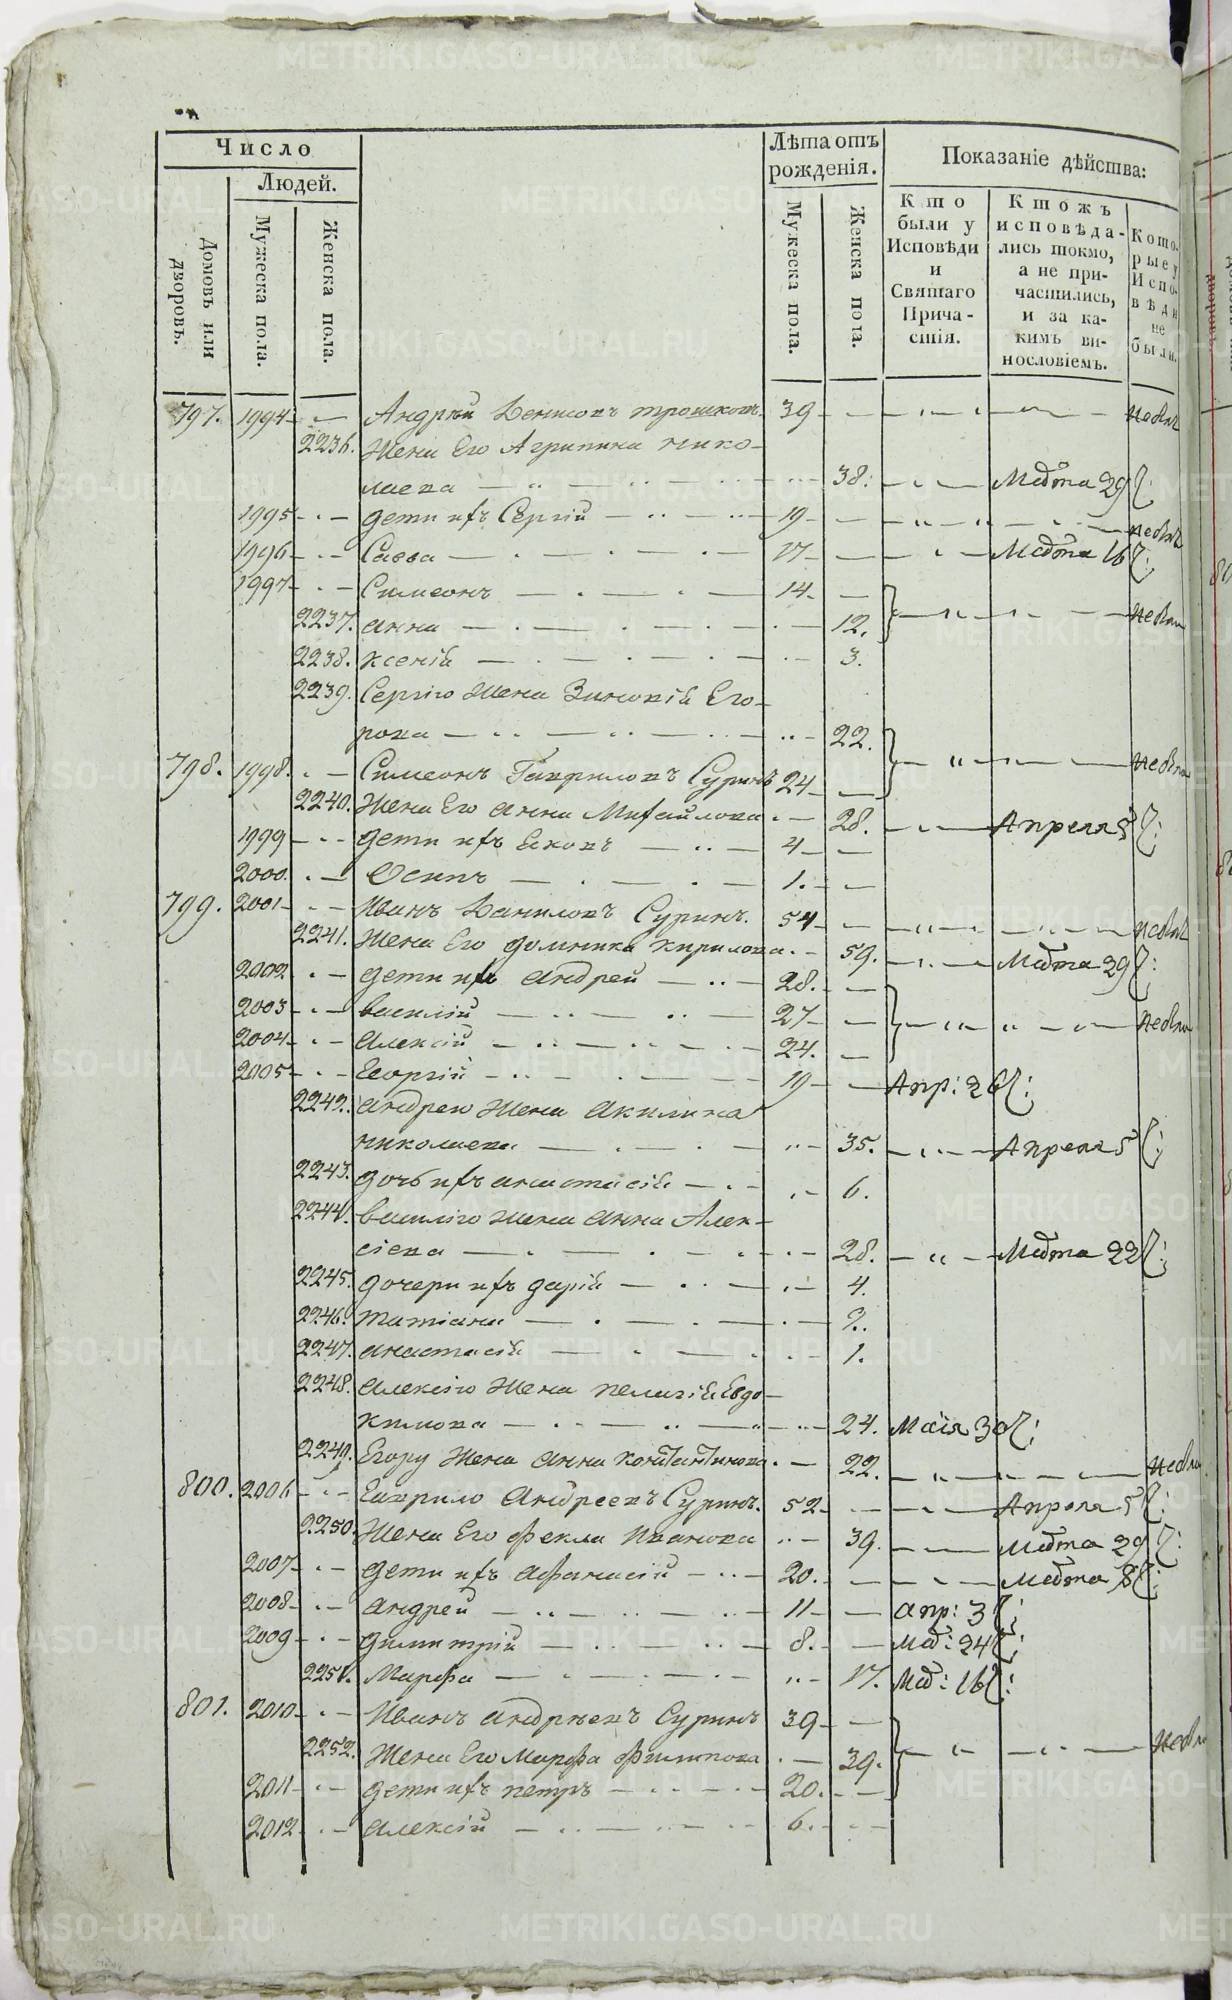 Число
Людей.
Домовъ или дворовъ.
Мужеска пола.
Женска пола.
Лѣта отъ рожденія.
Мужеска пола.
Женска пола.
Показаніе дѣйства:
Кто были у Исповѣди и Святаго Причастія.
Ктожъ исповѣдались токмо, а не причастились, и за какимъ винословіемъ.
Которые у Исповѣди не были.
797. 1994 Андрей Денисовъ 39
2236. Жена Его Агрипина Нико-
лаева 38.
1995 дети ихъ Сергій 19
1996 Савва 17
1997 Симеонъ 14
2237. анна 12.
2238. ксенія 3.
2239. Сергію Жена Зиновія Его-
рова 22.
798. 1998. Симеонъ Гаврилов Суринъ 24
2240. Жена Его анна Михайлова 28. Апреля 5
1999 дети ихъ Иаковъ 4
2000. Осипъ 1.
799. 2001 Иванъ Данилов Суринъ. 54
2241. Жена Его домника кирилова 59.
2002 дети ихъ андрей 28.
2003 василій 27
2004 алексій 24.
2005 Георгій 19 Апр: 26
2242. андрею Жена акилина
николаева 35. Апреля 5
2243. дочь ихъ анастасія 6.
2244. василію Жена анна Алек-
сіева 28.
2245. дочери ихъ дарія 4.
2246. татіана 2.
2247. анастасія 1.
2248. алексію Жена пелагія Евдо-
кимова 24. Маія 30
2249. Егору Жена анна константинова 22.
800. 2006 Гаврило андреевъ Суринъ. 52 Апреля 5
2250. Жена Его Фекла Иванова 39.
2007 дети ихъ афанасій 20.
2008 андрей 11 апр: 3
2009 димитрій 8.
2251. Марфа 17.
801. 2010 Иванъ андрѣевъ Суринъ 39
2252. Жена Его Марфа филипова 39.
2011 дети ихъ петръ 20.
2012 алексій 6.
METRIKI.GASO-URAL.RU